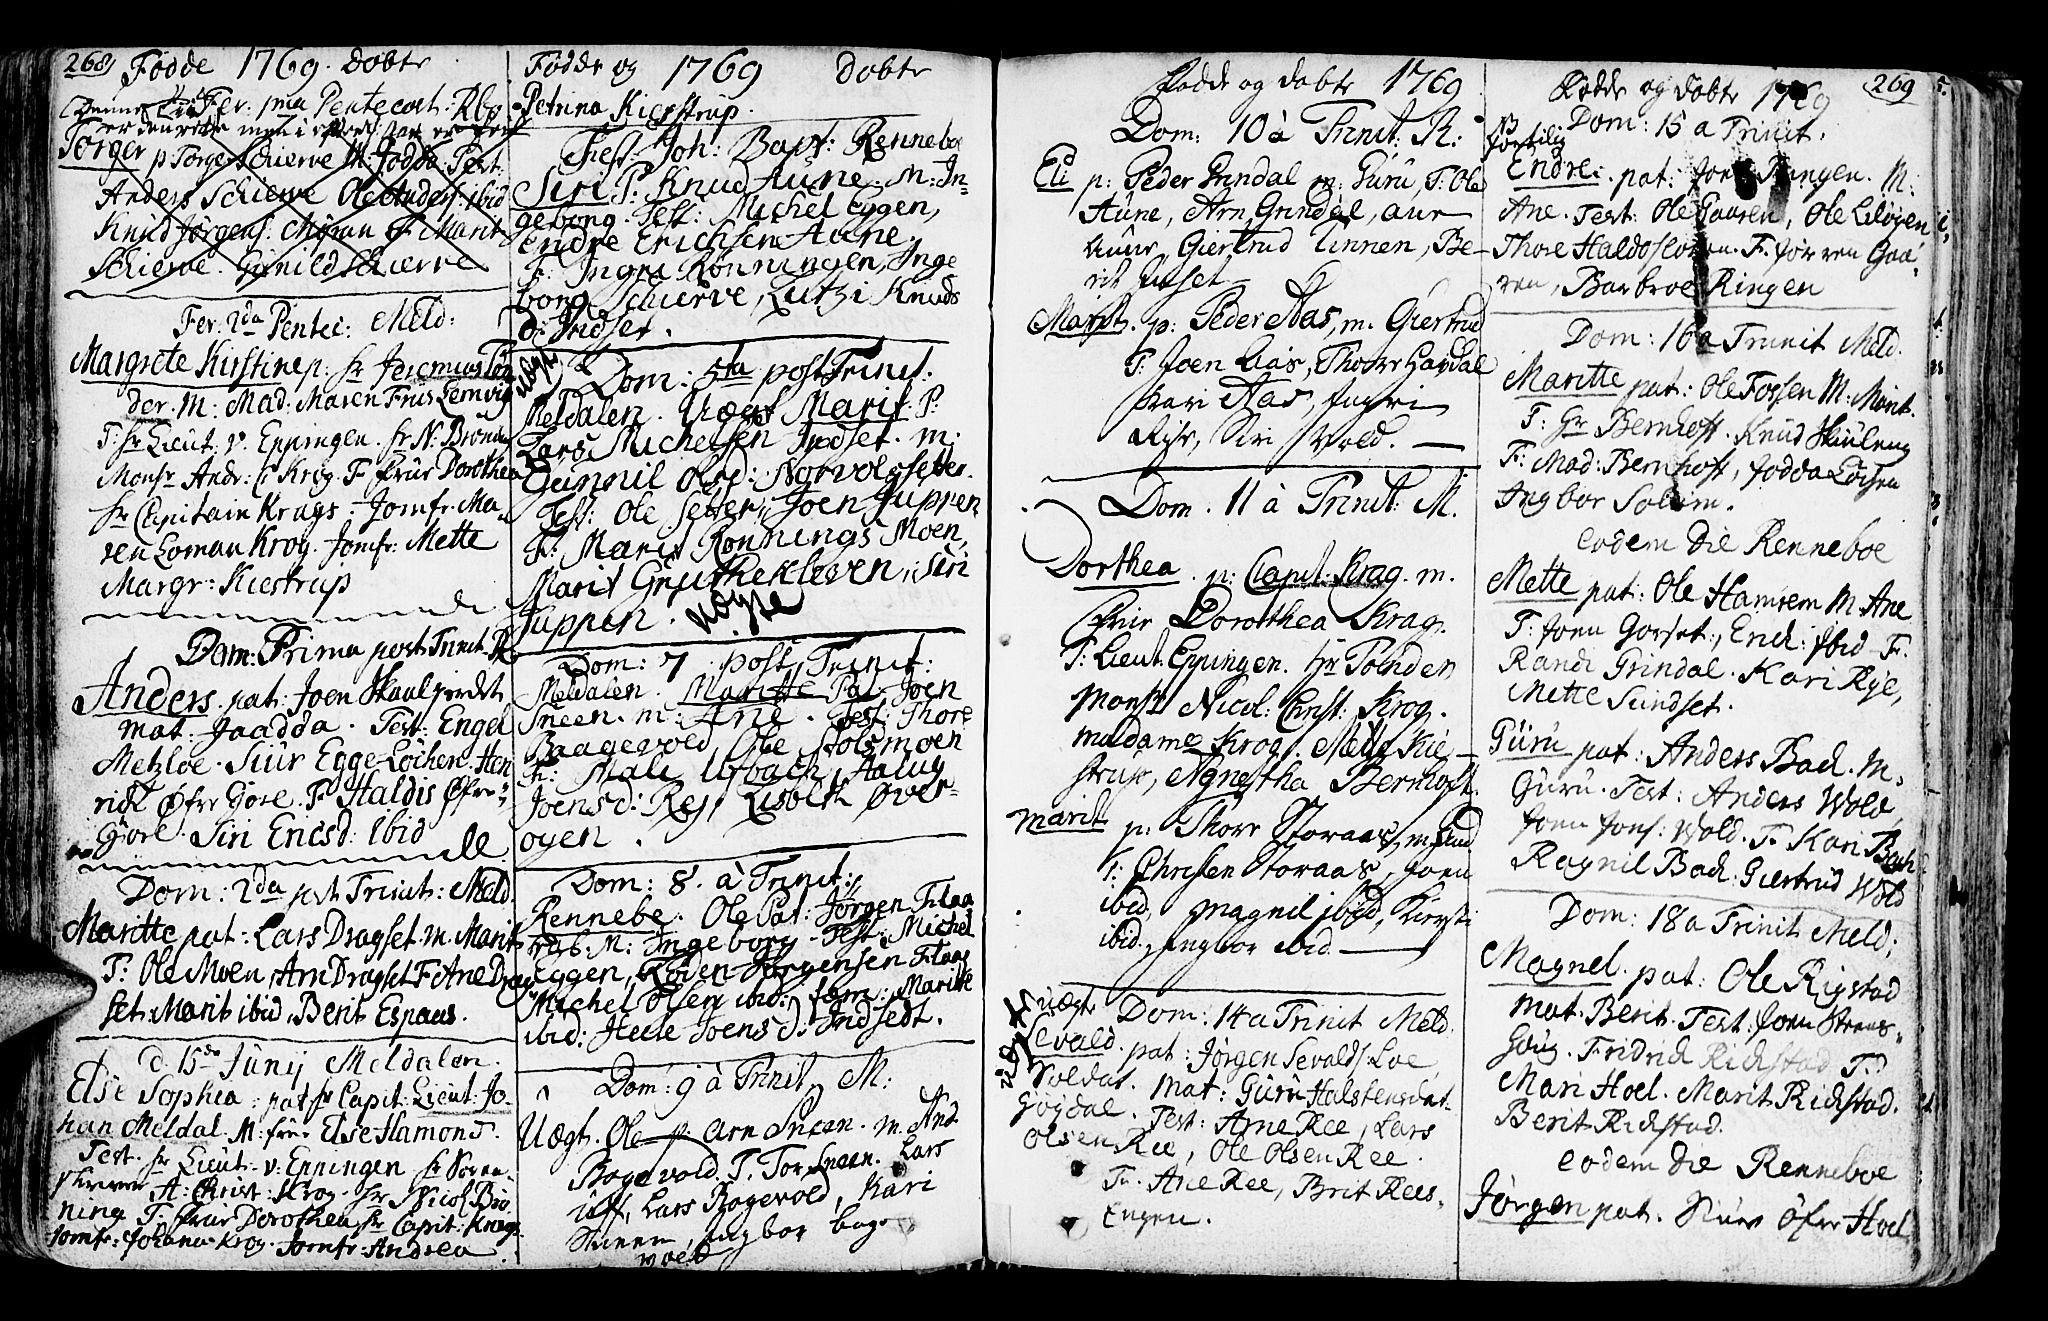 268) Fødde 1769. døbte
Fer: 1ma Pentecost: Rbo
Jørger p Jørger Schierve M: Jodda. Test:
Anders Schierve Ole Anders: ibid
Knud Jørgens. Moran F: Marit
Schierve. Gunild Schierve
Fer: 2da Pentec: Meld:
Margrete Kirstine p: Hr Jeremias Løn
der. M: Mad: Maren Friis Lemvig
T: Hr Lieut: v. Eppingen. Hr N: Brøn
Monsr Andr: C Krog. F Frue Dorothea
Hr Capitain Krags. Jomfr: Ma
ren Loman Krog. Jomfr: Mette
Margr: Kiestrup
Dom: Prima post Trinit. R
Anders. pat: Joen Skaulgierdet
mat: Jaadda. Test: Engel
Metzloe. Siur Egge Løchen. Hen
rich Øfre Gore. F Haldis Øfre
Gore. Siri Ericsd: ibid
Dom: 2da pst Trinit: Meld.
Maritte pat: Lars Dragset. m. Marit
T: Ole Moen, Arn Dragset F Ane Drag
set. Marit ibid, Berit Espaas.
d. 15de Junij Meldalen.
Else Sophea: pat Hr Capit: Lieut: Jo-
han Meldal. M: frue Else Hamond.
Test. Hr Lieut. v: Eppingen Hr Soren
skriver A: Christ: Krog. Hr Nicol Brø
ning F: Frue Dorothea, Hr Capit: Krags
Jomfr: Johanna Krog. Jomfr: Andrea
Fødde og 1769 døbte
Petrina Kierstrup.
Fest: Joh: Bapt: Renneboe
Siri P: Knud Aune. M: In-
geborg. Test: Michel Eggen,
Endre Erichsen Aune.
F: Ingri Rønningen, Inge
borg Schierve, Lutzi Knuds
d: Indset.
Dom: 5ta post Trinit.
Meldalen. Uægt Marit P:
Lars Michelsen Indset. m:
Gunnil Olsd: Norvolgsetter.
Test: Ole Setter, Joen Juppen
F: Marit Rønnings Moen,
Marit Gruthekleven, Siri
Juppen. Uægte
Dom: 7 post Trinit:
Meldalen. Maritte Pat. Joen
Sneen. m: Ane. Test: Thore
Baagevold, Ole Stolsmoen
F: Mali Urbach, Aalug
Joensd: Rej, Lisbeth Øver-
øyen.
Dom: 8. à Trinit:
Rennebe. Ole Pat: Jørgen Flaa
M: Ingeborg. Test: Michel
Eggen, Joen Jørgensen Flaa
Michel Olsen ibid: fam: Maritte
ibid: Heele Joensd: Indsedt.
Dom: 9 à Trinit. M:
Uægt. Ole p. Arn Sneen. m. And
Bogevold. T. Tor Sneen. Lars
uff, Lars Bogevold, Kari
Sneen, Ingbor boge
vold
Fødde og døbte 1769
Dom: 10 à Trinit. R.
Eli p: Peder Grindal m: Guru, T: Ole
Aune, Arn Grindal,
Aune, Giertrud Linnen, Be-
rit Indset
Marit. p: Peder Aas, m. Giertrud
T: Joen Aas, Thore Havdal
Kari Aas, Ingri
Rise, Siri Wold.
Dom. 11 à Trinit: M.
Dorthea. p: Capit: Krag. m.
Frue Dorothea Krag.
T: Lieut. Eppingen. Hr Lønder
Monsr Nicol: Christ: Krog.
Madame Krog. Mette Kie-
strup, Agnetha Bernhoft.
Marit p: Thore Storaas, m
T: Christen Storaas, Joen
ibid, Magnil ibid, Kiersti
ibid, Ingbor ibid.
uægte Dom: 14 a Trinit Meld.
Sevald. pat: Jørgen Sevalds: Loe,
Soldat. Mat: Guru Halstensdat-
Gogdal. Test: Arne Ree, Lars
Olsen Ree, Ole Olsen Ree.
F. Ane Ree, Brit Rees-
Engen.
Fødde og døbte 1769 269
Dom: 15 a Trinit.
Endre. pat: Ringen. M:
Ane. Test: Ole Gaasen, Ole Liløien
Thore Haldosløren. F. Jørren Gaa-
ren, Barbroe Ringen
Dom: 16 a Trinit Meld.
Maritte pat: Ole Fossen M: Marit.
T: Hr Bernhoft. Knud Skiuleng
F: Mad: Bernhoft, Jodda Løchen
Ingbor Solem.
eodem die Renneboe
Mette pat: Ole Hamrem M Ane
T: Joen Gorset, Erich: ibid F.
Randi Grindal. Kari Rye,
Mette Sundset.
Guru pat: Anders Bach. M:
Guru. Test: Anders Wold,
Joen Jons: Wold. F. Kari Bach
Ragnil Bach. Giertrud Wold
Dom: 18 a Trinit Meld:
Magnel. pat: Ole Rigstad
mat. Berit. Test: Joen Strens-
Goug. Fridrich Rickstad F:
Mari Hoel. Marit Rickstad.
Berit Rickstad.
eodem die Renneboe
Jørgen pat. Siur Øfre Hoel